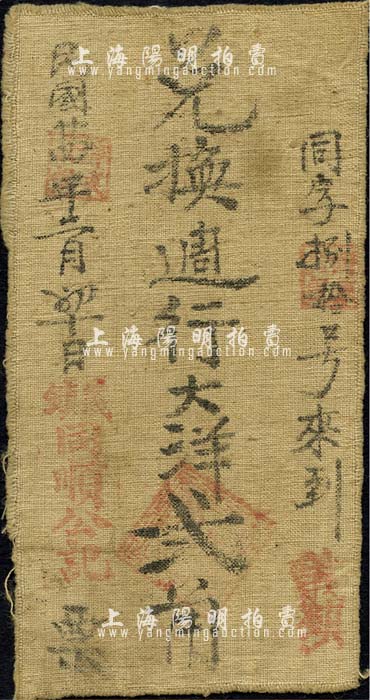 同字捌拾号來到
兌換通行大洋弍角
民國廿年二月初日
同順公記
票
上海陽明拍賣
www.yangmingauction.com
上海陽明拍賣
www.yangmingauction.com
上海陽明拍賣
www.yangmingauction.com